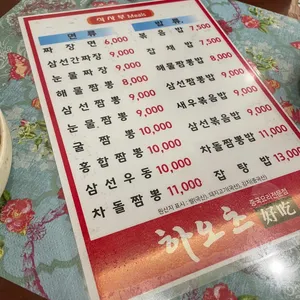 식사부 Meals
면류
짜장면 6,000
삼선간짜장 9,000
눈물짜장 9,000
해물짬뽕 8,000
삼선짬뽕 9,000
눈물짬뽕 9,000
굴짬뽕 10,000
홍합짬뽕 10,000
삼선우동 10,000
차돌짬뽕 11,000
밥류
볶음밥 7,500
잡채밥 7,500
해물짬뽕밥 8,000
삼선짬뽕밥 9,000
새우볶음밥 9,000
삼선볶음밥 9,000
차돌짬뽕밥 11,000
잡탕밥 13,000
원산지 표시 : 쌀(국산), 돼지고기(국산), 김치(중국산)
중국요리전문점
하오츠 好吃